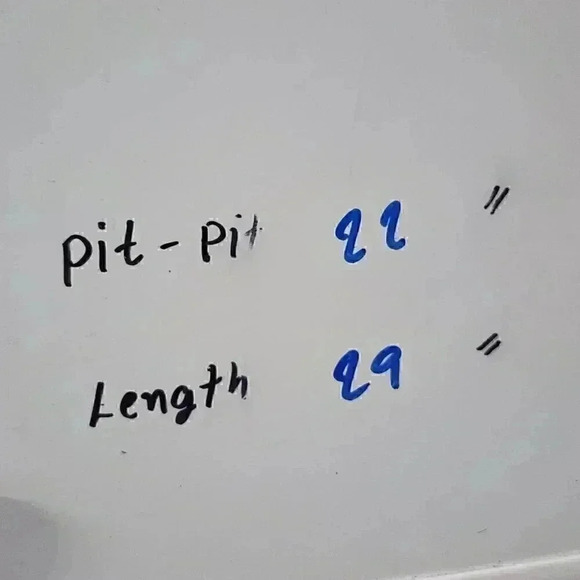 Pit - Pit 22 "
Length 29 "